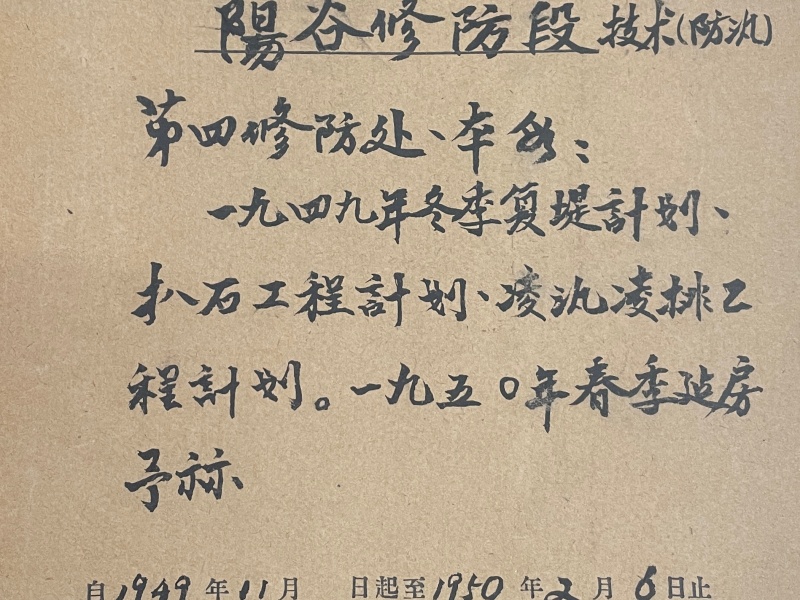 陽谷修防段技术(防汛)
第四修防处、本段:
一九四九年冬季复堤計划、
扒石工程計划、凌汛凌排工
程計划。一九五〇年春季建房
予祘
自1949年11月 日起至1950年2月6日止